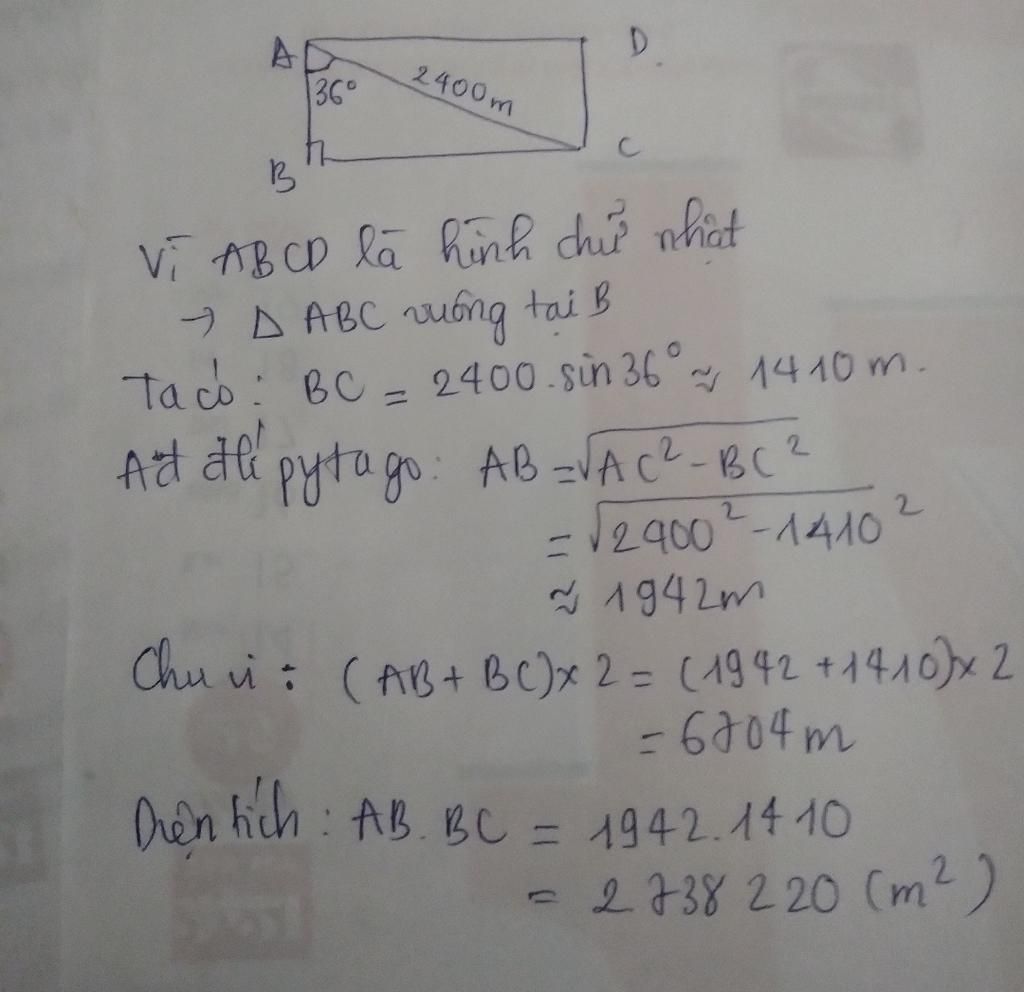 A
D.
36°
2400m
B
C
Vì ABCD là hình chử nhật
→ Δ ABC vuông tại B
Ta có: BC = 2400.sin36° ≈ 1410m.
Ad đlí pytago: AB = √AC² - BC²
= √2400² - 1410²
≈ 1942m
Chu vi : (AB + BC)x 2 = (1942 + 1410)x 2
= 6704m
Diện tích : AB. BC = 1942.1410
= 2 738 220 (m²)